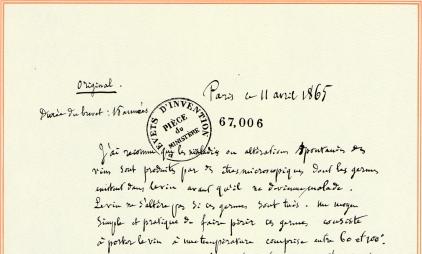 Original.
Paris ce 11 avril 1865
Durée du brevet : 15 années
BREVETS D'INVENTION
PIÈCE
du
MINISTÈRE
67,006
J'ai reconnu que les maladies ou altérations spontanées des
vins sont produites par des êtres microscopiques dont les germes
existent dans le vin avant qu'il ne devienne malade.
Le vin ne s'altère pas si ces germes sont tués. Un moyen
simple et pratique de faire périr ces germes consiste
à porter le vin à une température comprise entre 60 et 100°.